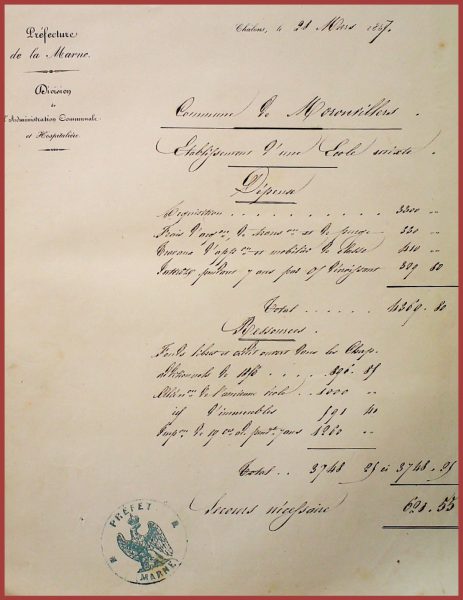 Préfecture
de la Marne.
Division
de
l'Administration Communale
et Hospitalière.
Châlons, le 28 Mars 1857.
Commune de Moronvilliers
Etablissement d'une Ecole mixte
Dépense
Acquisition . . . . . . . . . . 3300 "
Frais d'acq.on de trans.on et de purge 330 "
Travaux d'app.on et mobilier de classe "
Intérêts pendant 7 ans 309 80
Total . . . . . 4369. 80
Ressources .
Fonds libres et
additionnels de 1856 . . . . 896. 85
Alién.on de l'ancienne école . . 1000 "
id d'immeubles 591 40
Imp.on de 19 pend.t 7 ans 1260 "
Total . . 3748 25 ci 3748. 25
Secours nécessaire 621. 55
PRÉFET
MARNE